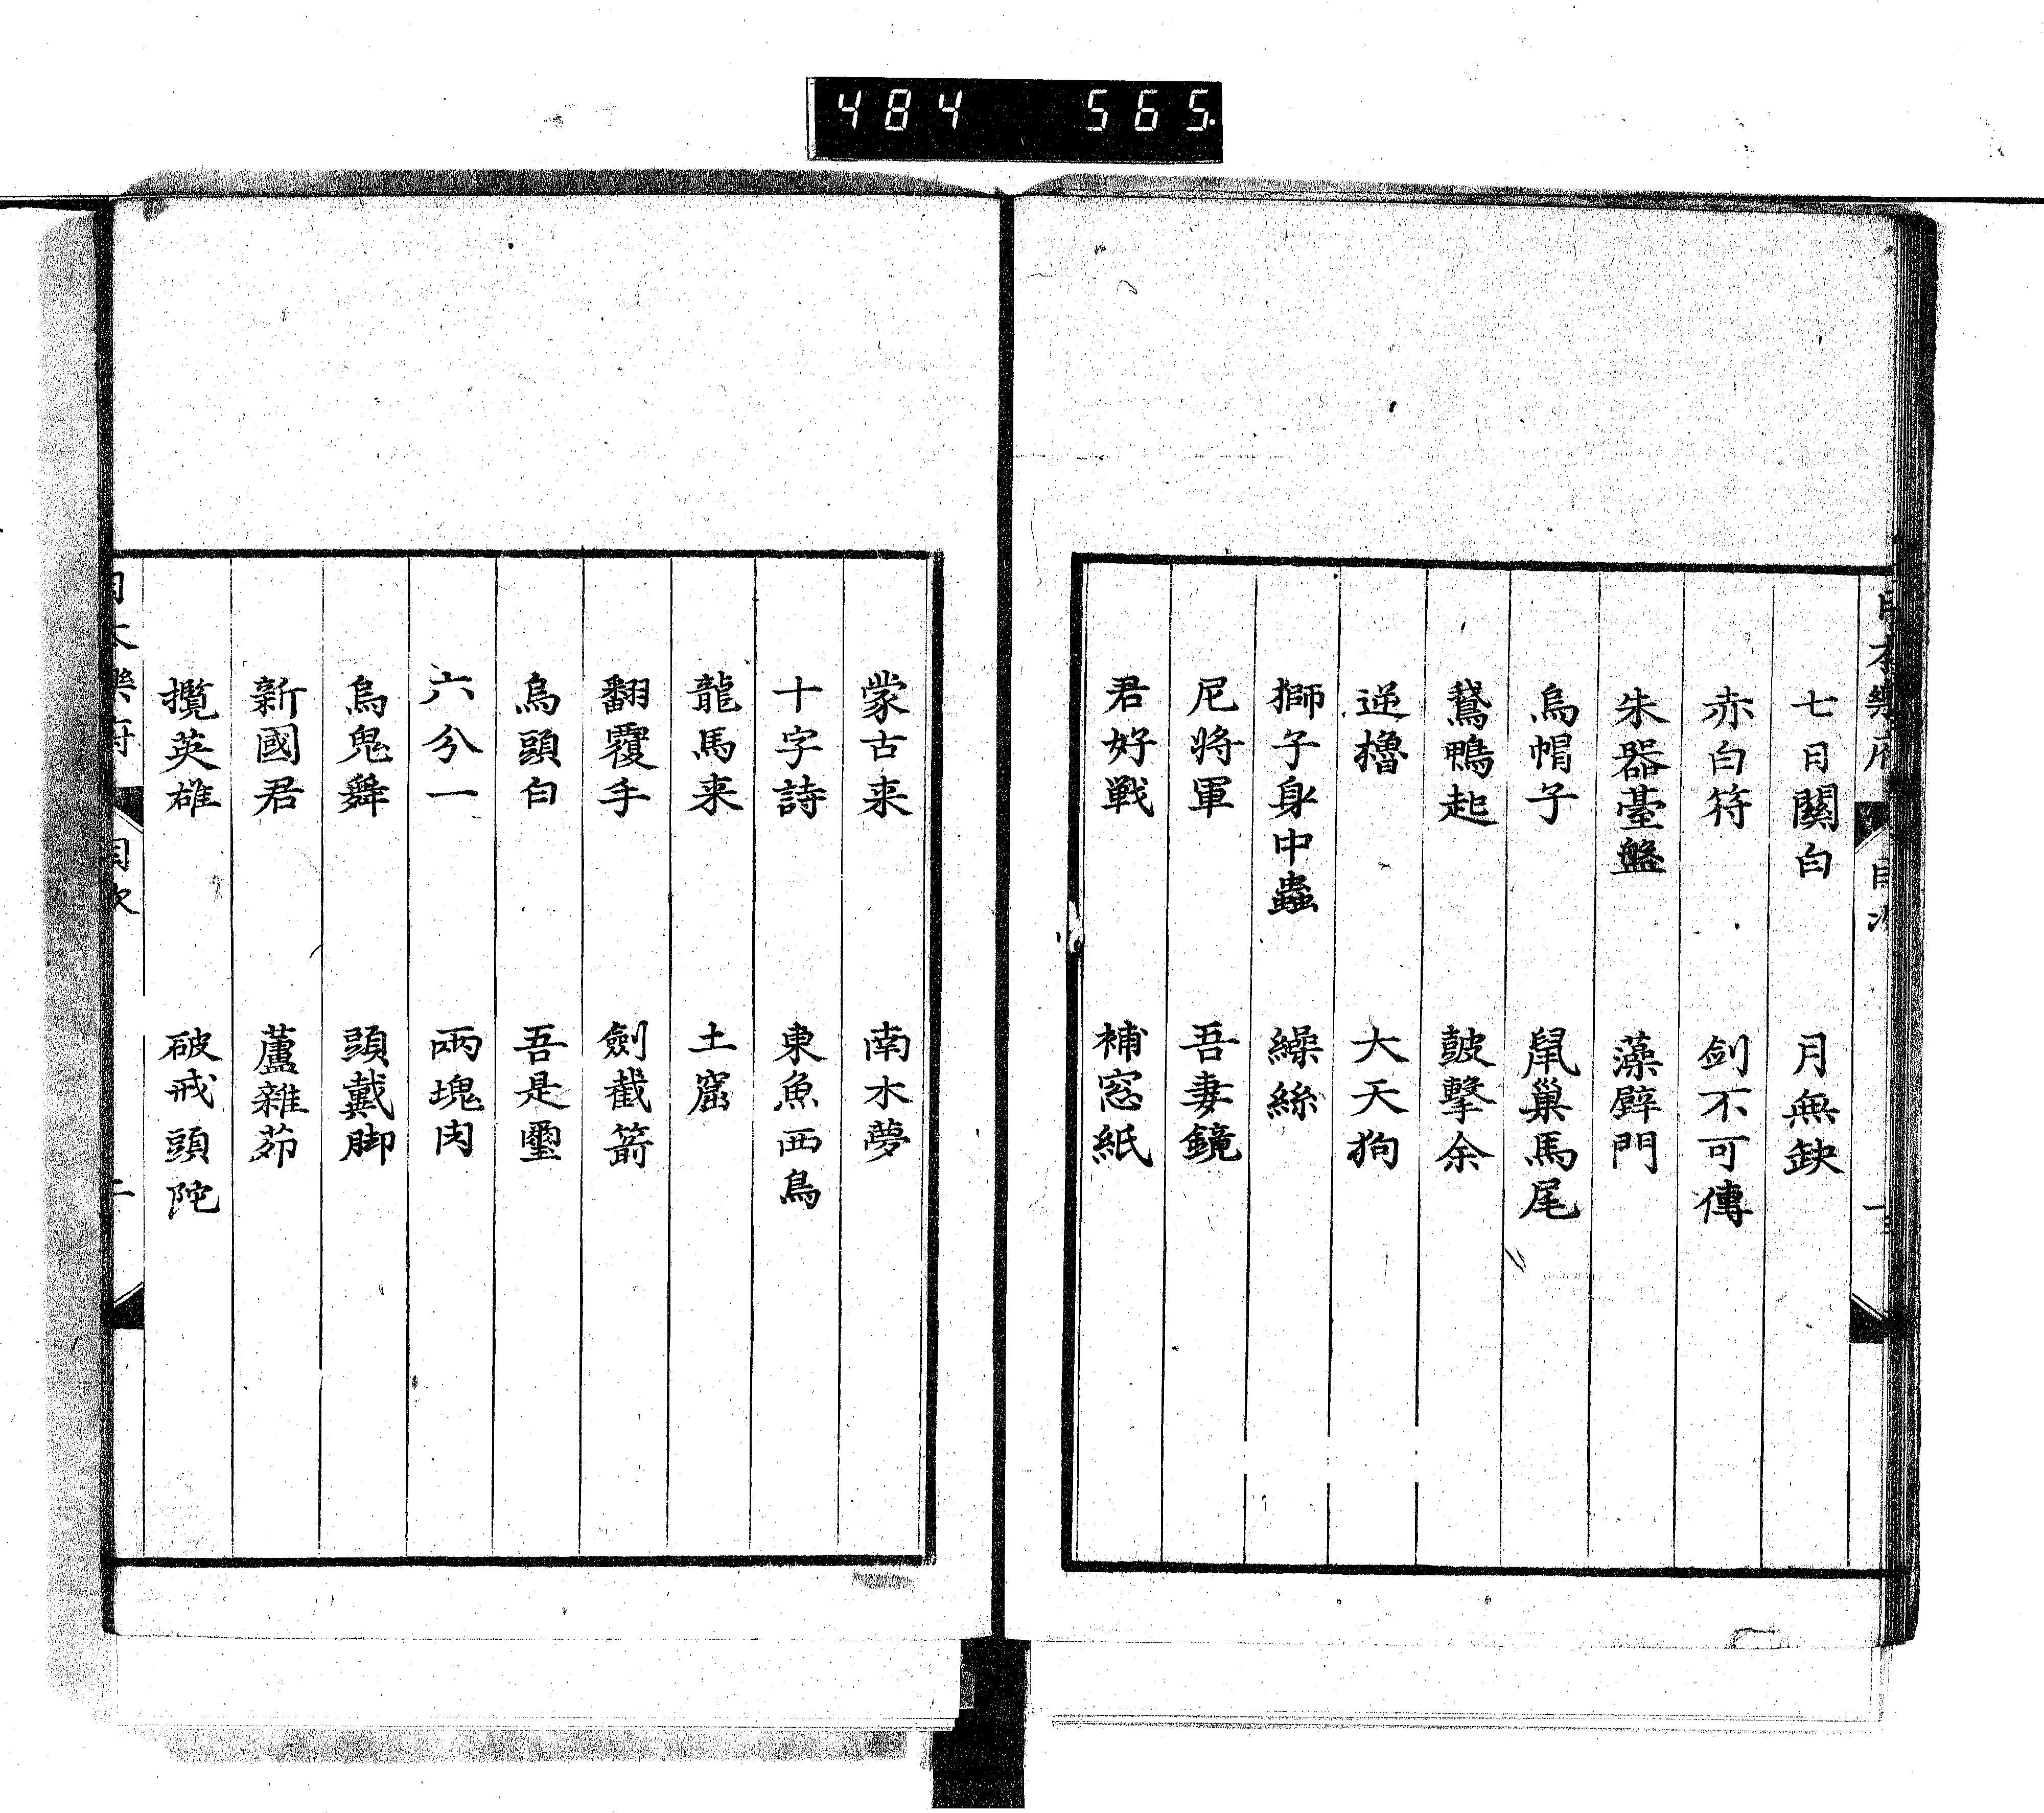 484 565
日本樂府 目次
七日關白 月無缺
赤白符 剑不可傳
朱器臺盤 藻壁門
烏帽子 鼠巢馬尾
鵞鴨起 鼓擊余
逆櫓 大天狗
獅子身中蟲 繰絲
尼將軍 吾妻鏡
君好戦 補窓紙
蒙古来 南木夢
十字詩 東魚西鳥
龍馬来 土窟
翻覆手 劍截箭
烏頭白 吾是璽
六分一 兩塊肉
烏鬼舞 頭戴脚
新國君 蘆雜茆
攬英雄 破戒頭陀
日本樂府 目次